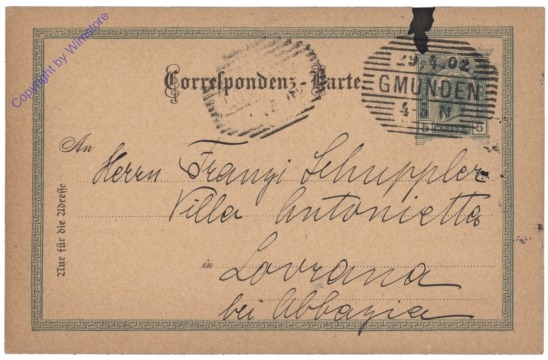 Copyright by Winstore
Correspondenz-Karte
29.4.02
GMUNDEN
4-5 N
5 5
An
Herrn Franzi Schuppler
Villa Antonietta
in Lovrana
bei Abbazia
Nur für die Adresse